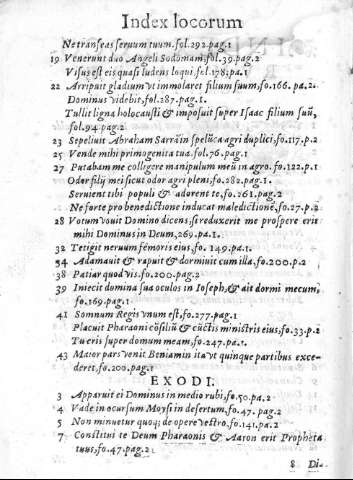 Index locorum
Ne transeas seruum tuum. fol. 292. pag. 1
19 Venerunt duo Angeli Sodomam, fol. 39. pag. 2
Visus est eis quasi ludens loqui, fol. 138. pa. 1
22 Arripuit gladium vt immolaret filium suum, fo. 166. pa. 2.
Dominus videbit, fol. 287. pag. 1.
Tullit ligna holocausti & imposuit super Isaac filium suũ, fol. 94. pag. 2
23 Sepeliuit Abraham Sarrã in spelũca agri duplici, fo. 117. p. 2
25 Vende mihi primogenita tua. fol. 76. pag. 1
27 Putabam me colligere manipulum meũ in agro. fo. 122. p. 1
Odor filij mei sicut odor agri pleni, fo. 282. pag. 1.
Seruient tibi populi & adorent te, fo. 261. pag. 2
Ne forte pro benedictione inducat maledictionẽ, fo. 27. p. 2
28 Votum vouit Domino dicens, si reduxerit me prospere erit
mihi Dominus in Deum, 269. pa. 1.
32 Tetigit neruum femoris eius, fo. 149. pa. 1.
34 Adamauit & rapuit & dormiuit cum illa. fo. 200. p. 2
38 Patiar quod vis. fo. 200. pag. 2
39 Iniecit domina sua oculos in Ioseph, & ait dormi mecum,
fo. 169. pag. 1
41 Somnum Regis vnum est, fo. 277. pag. 1
Placuit Pharaoni cõsiliũ & cũctis ministris eius, fo. 33. p. 2
Tu eris super domum meam, fo. 247. pa. 1.
43 Maior pars venit Beniamin ita vt quinque partibus exce-
deret, fo. 200. pag. 1
EXODI.
3 Apparuit ei Dominus in medio rubi, fo. 50. pa. 2
4 Vade in ocursum Moysi in desertum, fo. 47. pag. 2
5 Non minuetur quoq; de opere vestro, fo. 141. pa. 2
7 Constitui te Deum Pharaonis & Aaron erit Propheta
tuus, fo. 47. pag. 2
8 Di-